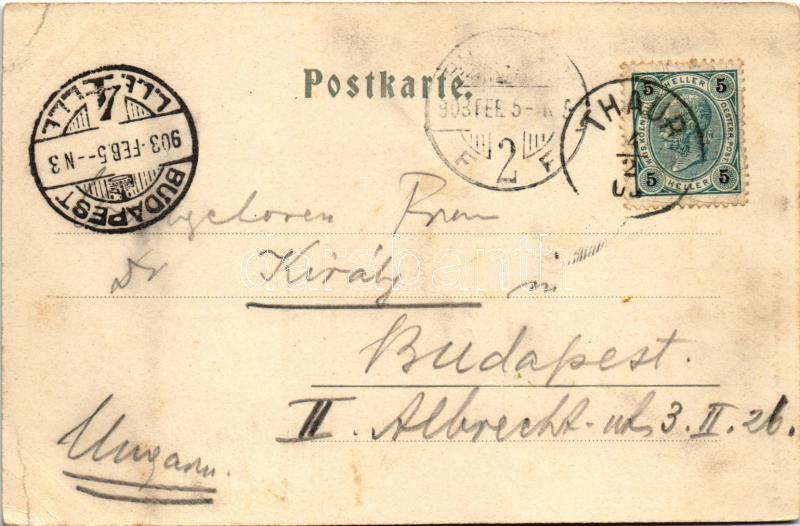 Postkarte.
903 FEB. 5 - N 3
BUDAPEST
903 FEB 5 - N
2
THAUR
2
03
5 HELLER 5
KAIS. KOENIGL. OESTERR. POST
5 HELLER 5
darabanth
Dr Király in
Budapest.
II. Albrecht-ut 3. II. 26.
Ungarn.